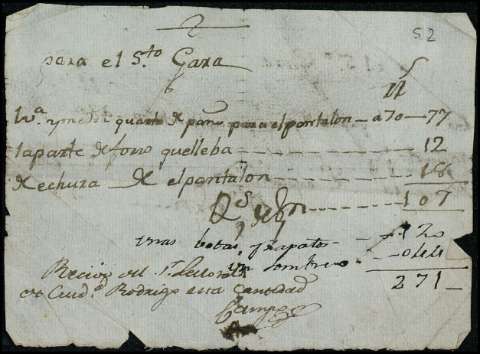 52
para el S.to Gara
1 v.a y media quarta de paño para el pantalon — a 70 — 77
la parte de forro que lleba — 12
de echura de el pantalon — 18
R.s de von — 107
unas botas y zapatos — 120
un sombrero — 044
Recivi del S.r Lectoral
de Ciud.d Rodrigo esta Cantidad
271
Campo